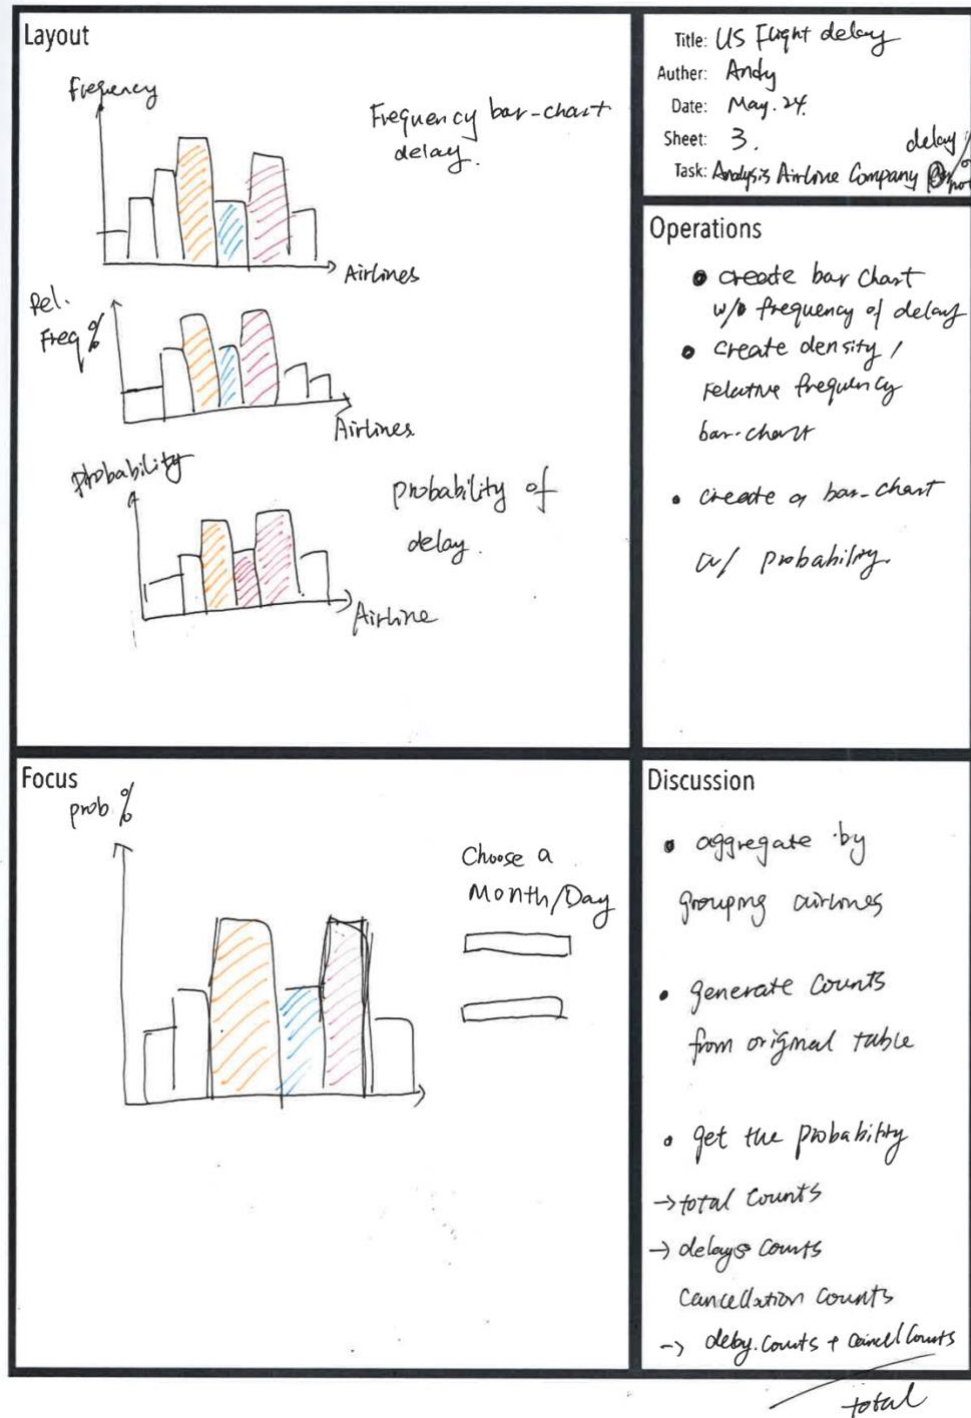 Layout
Frequency
Frequency bar-chart
delay.
Airlines
Rel.
Freq %
Airlines
Probability
probability of
delay.
Airline
Title: US Flight delay
Auther: Andy
Date: May. 24.
Sheet: 3.
delay %
Task: Analysis Airline Company
Operations
• create bar chart
w/o frequency of delay
• create density /
relative frequency
bar-chart
• create a bar-chart
w/ probability.
Focus
prob %
Choose a
Month/Day
Discussion
• aggregate by
grouping airlines
• generate counts
from original table
• get the probability
→ total counts
→ delays counts
Cancellation counts
→ delay.counts + cancel counts
total